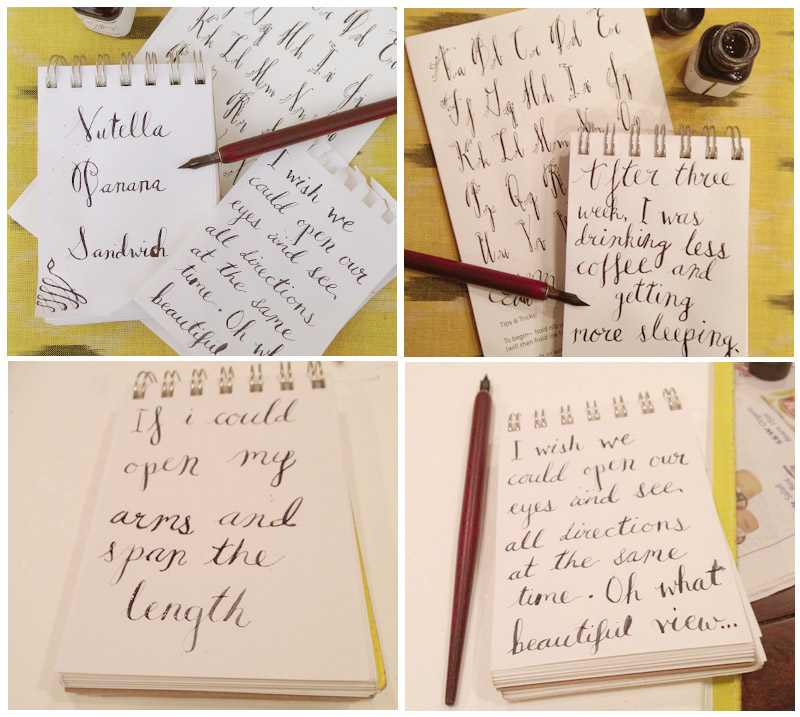 Nutella
Banana
Sandwich
Kk Ll Mm Nn
I wish we
could open our
eyes and see
all directions
at the same
time. Oh wh
beautiful
Aa Bb Cc Dd Ee
Ff Gg Hh Ii Jj
Kk Ll Mm Nn Oo
Pp Qq R
Uu Vv
Tips & Tricks:
To begin– hold nib
(will then hold ink
After three
week, I was
drinking less
coffee and
getting
more sleeping.
If i could
open my
arms and
span the
length
I wish we
could open our
eyes and see
all directions
at the same
time. Oh what
beautiful view...
S&W Organic